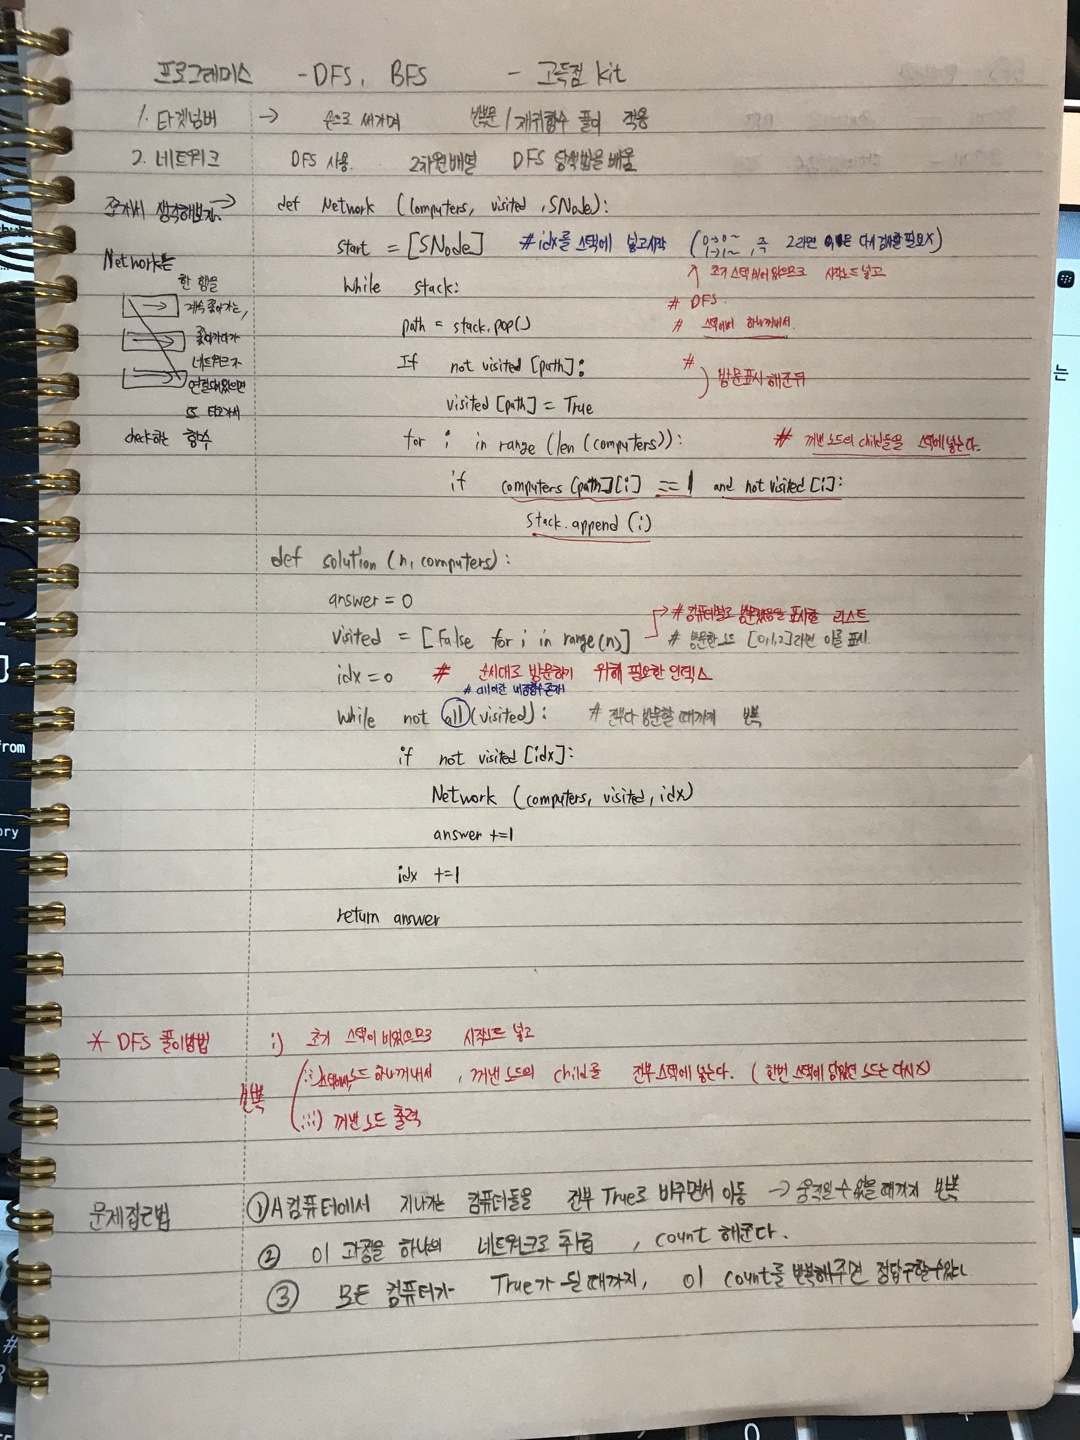 프로그래머스 - DFS, BFS - 고득점 kit
1. 타겟넘버 → 손으로 써가며 반복문 / 재귀함수 풀이 적용
2. 네트워크 DFS 사용. 2차원배열 DFS 탐색법을 배움
생각해보자 → def Network (computers, visited, SNode):
start = [SNode] # idx를 스택에 넣고시작 (0→0~ 1→1~ , 즉 2라면 다시 검사할 필요X)
Network는
한 행을
↑ 초기 스택 비어있으므로 시작노드 넣고
While stack:
계속 쫓아가는,
# DFS.
path = stack.pop()
# 스택에서 하나꺼내서.
쫓아가다가
If not visited [path]:
#
) 방문표시 해준뒤
네트워크가
연결돼있으면
visited [path] = True
또 타고가서
check하는 함수
for i in range (len (computers)): # 꺼낸 노드의 child들을 스택에 넣는다.
if computers [path][i] == 1 and not visited [i]:
stack.append (i)
def solution (n, computers):
answer = 0
→ # 컴퓨터별로 방문했음을 표시할 리스트
visited = [False for i in range(n)] # 방문한 노드 [0,1,2]라면 이를 표시.
idx = 0 # 순서대로 방문하기 위해 필요한 인덱스
# all이란 내장함수존재!
While not all (visited): # 전부다 방문할 때까지 반복
if not visited [idx]:
Network (computers, visited, idx)
answer +=1
idx +=1
return answer
* DFS 풀이방법 i) 초기 스택이 비었으므로 시작노드 넣고
반복 ii) 스택에서 노드 하나꺼내서, 꺼낸 노드의 child를 전부 스택에 넣는다. (한번 스택에 담았던 노드는 다시X)
iii) 꺼낸 노드 출력
문제접근법 ① A컴퓨터에서 지나가는 컴퓨터들을 전부 True로 바꾸면서 이동 → 움직일 수 없을 때까지 반복
② 이 과정을 하나의 네트워크로 취급, count 해준다.
③ 모든 컴퓨터가 True가 될 때까지, 이 count를 반복해주면 정답구할수있다
는
from
ory